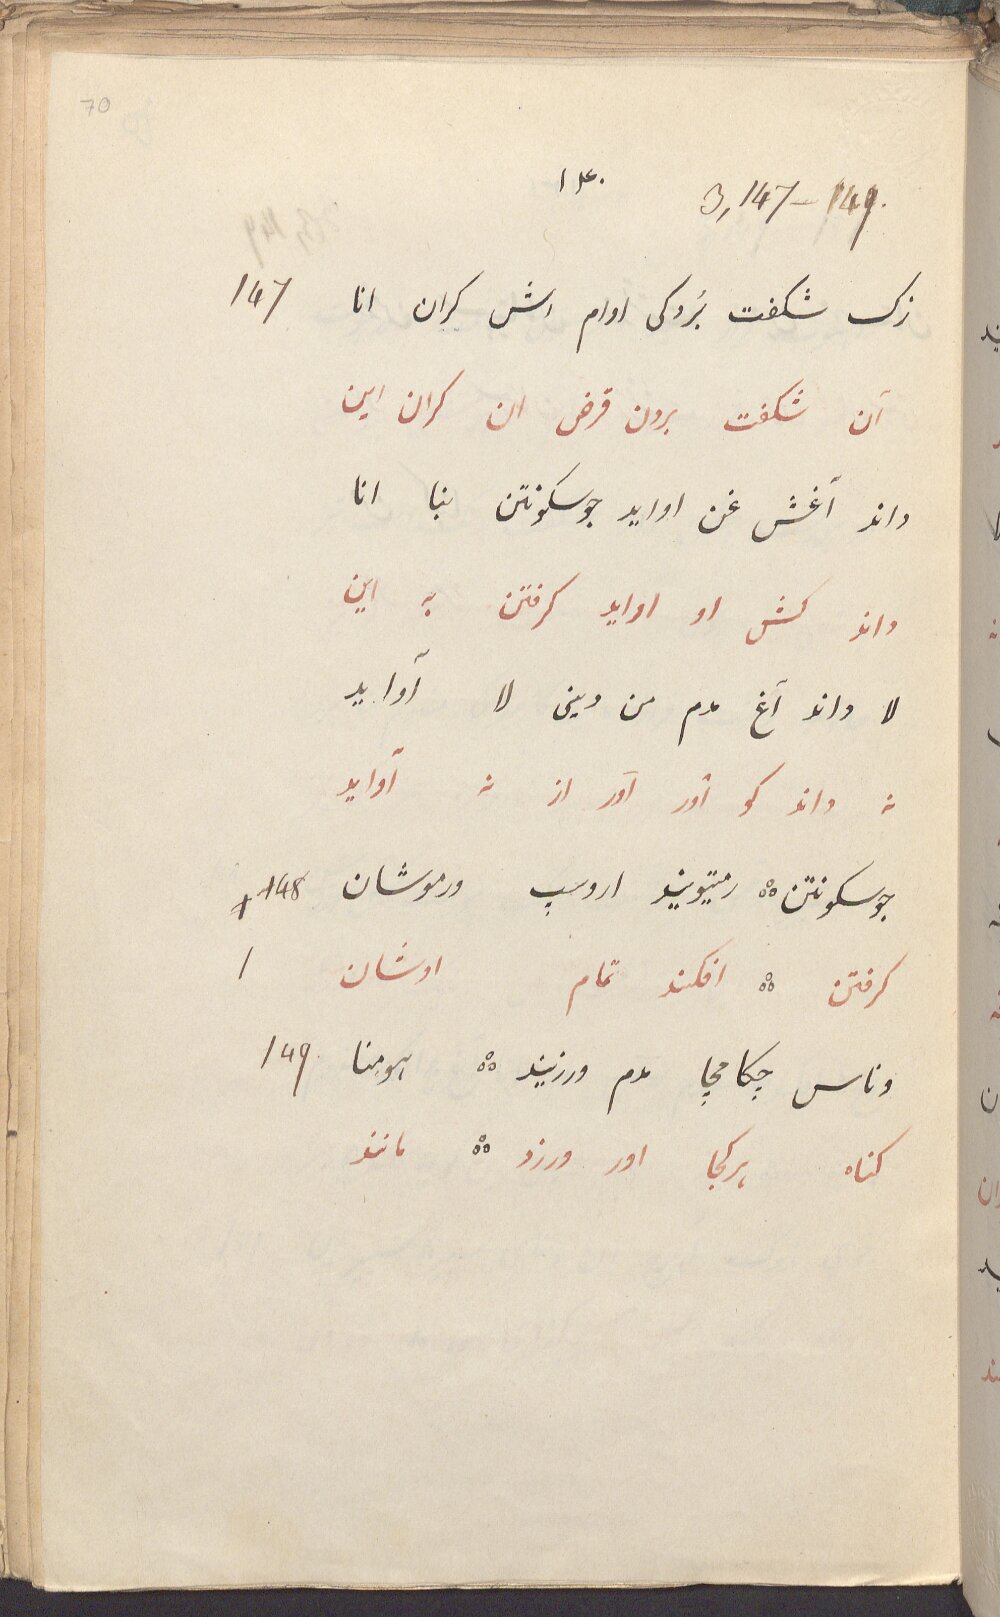 70
۱۴۰ 3,147-149.
زک شکفت بُروکی اوام اش کران انا 147
آن شکفت برون قرض ان کران این
داند آغش غن اواید جوسکونتن بنا انا
داند کش او اواید کرفتن به این
لا داند آغ مدم من دینی لا آواید
نه داند کو آور آور از نه آواید
جوسکونتن ܀ رمیتویند اروسپ ورموشان 148
کرفتن ܀ افکند تمام اوشان
وناس چکامچا مدم ورزیند ܀ هومنا 149.
کناه هرکجا اور ورزد ܀ مانند